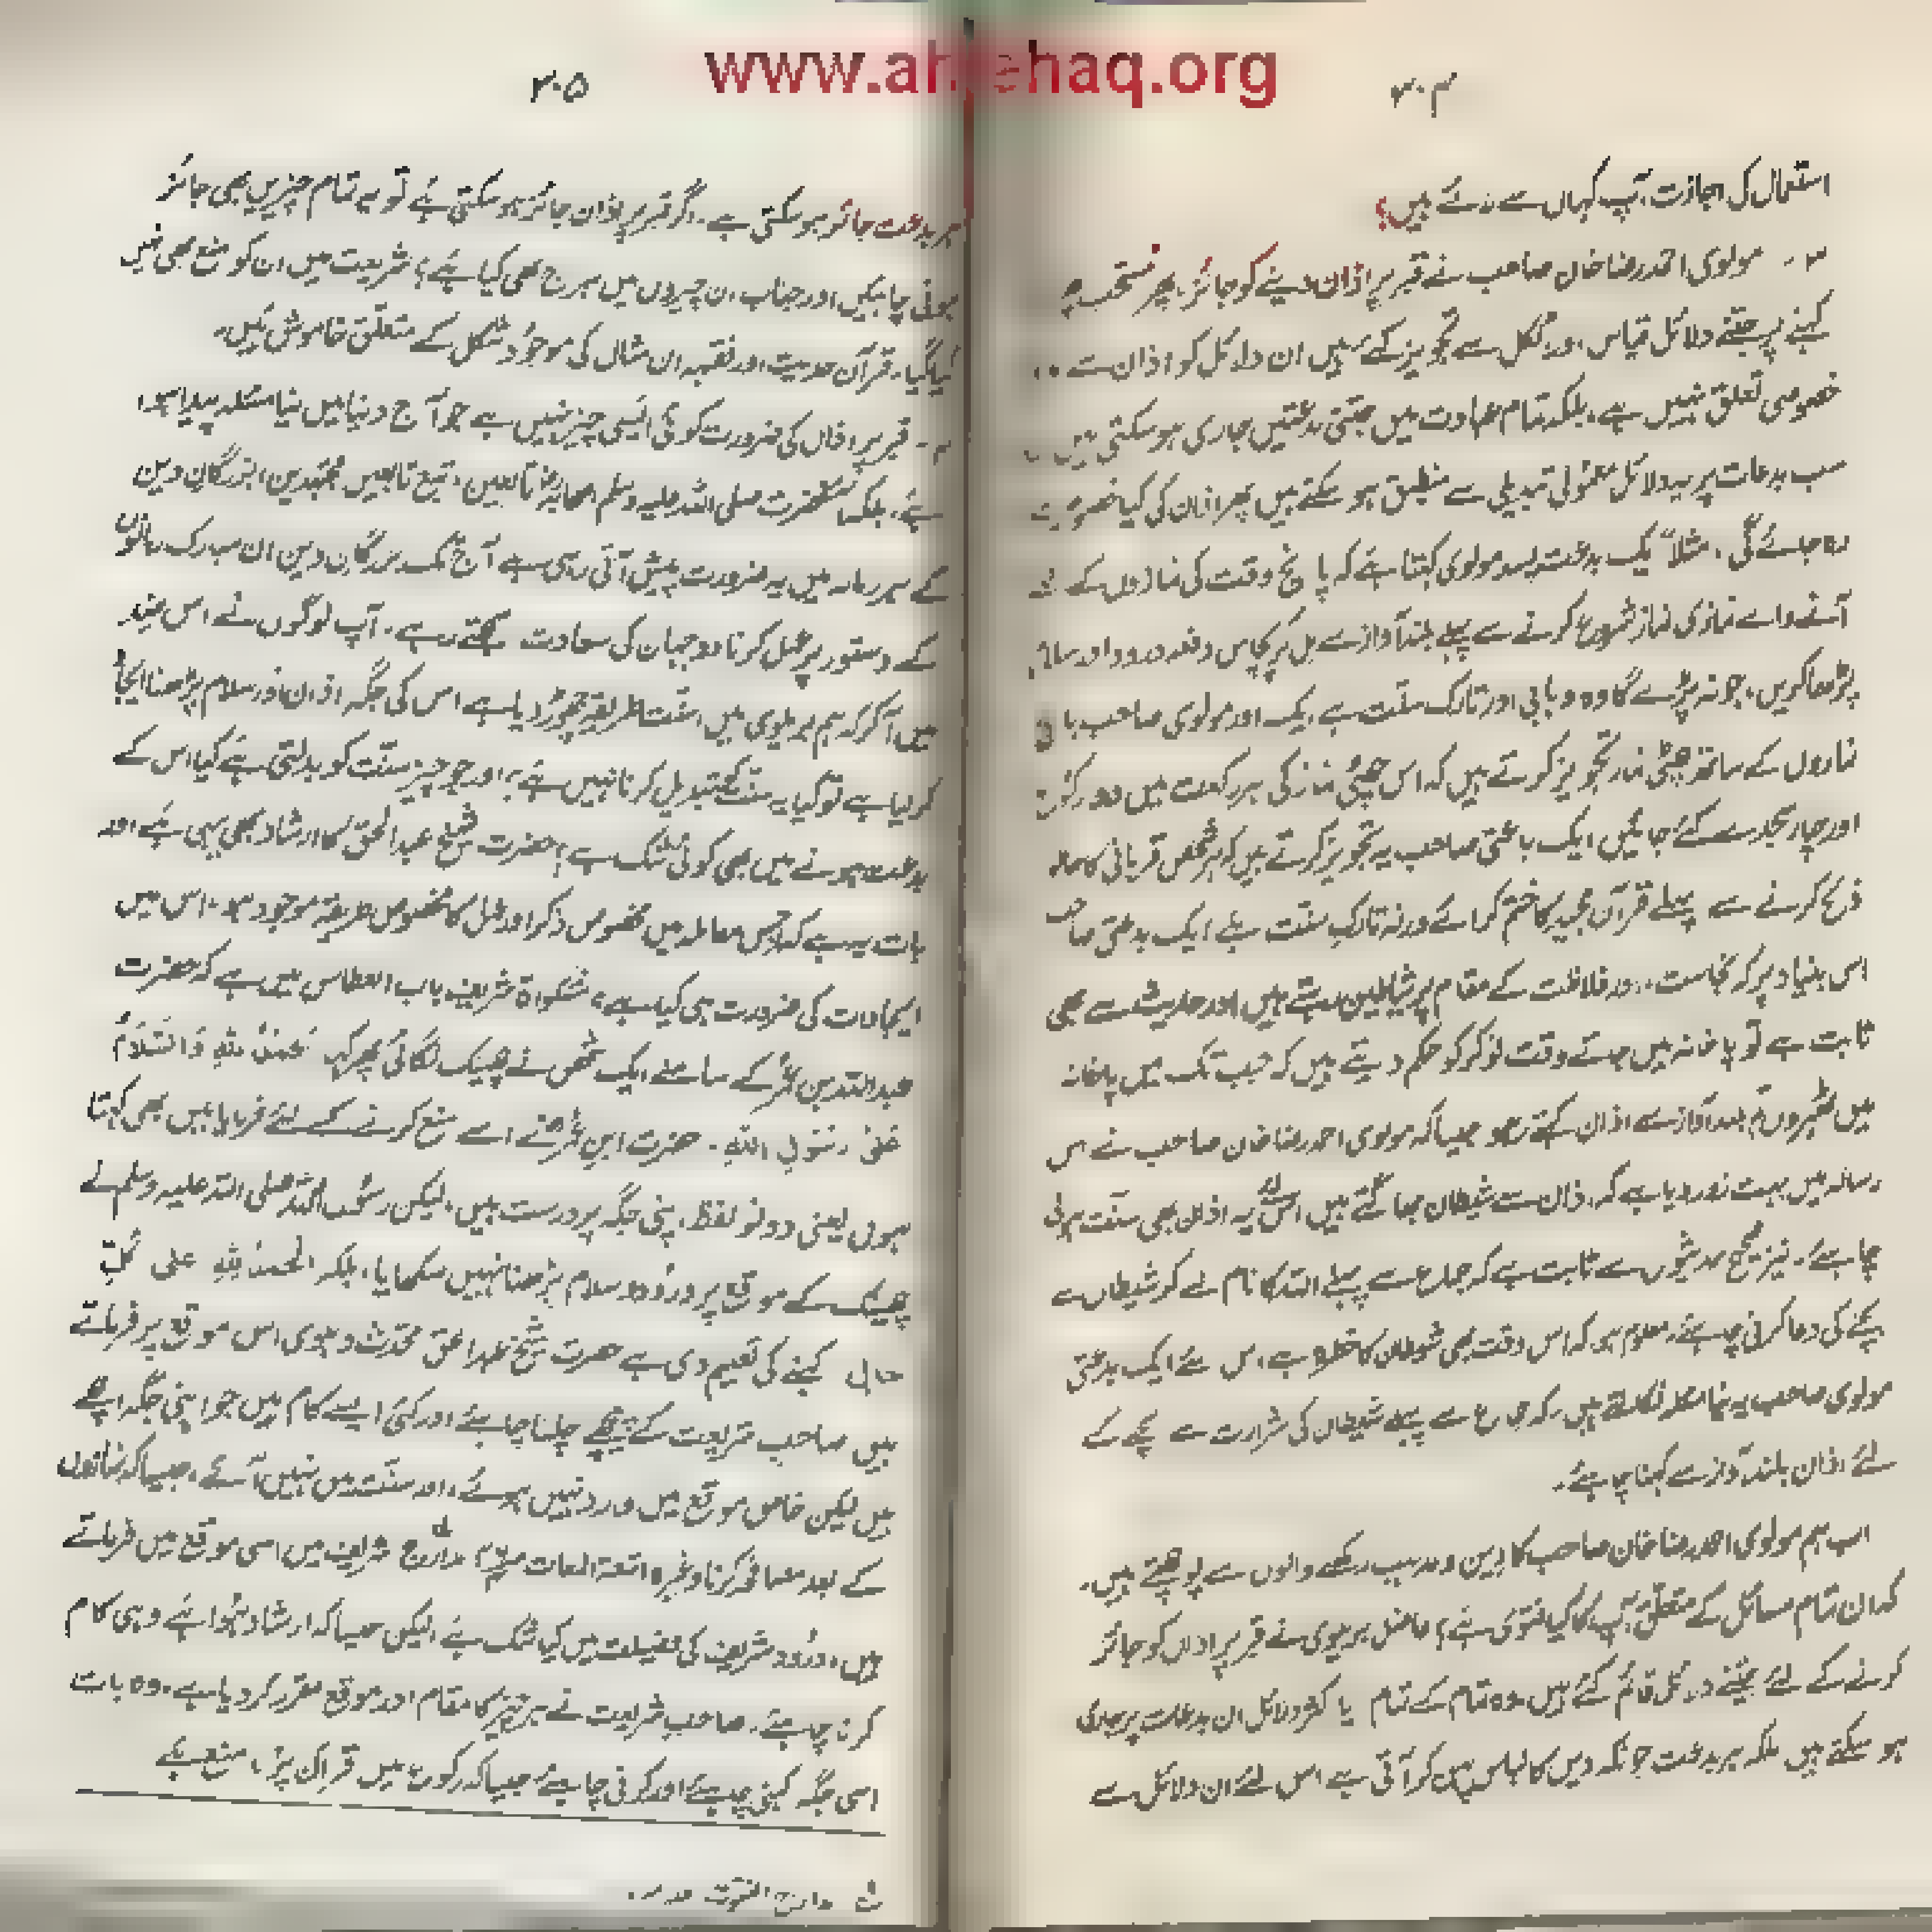 www.ahlehaq.org
۲۰۴
استعمال کی اجازت آپ کہاں سے لائے ہیں؟
۳۔ مولوی احمد رضا خان صاحب نے قبر پر اذان دینے کو جائز، پھر مستحب
کہنے پر جتنے دلائل قیاس اور اٹکل سے تجویز کئے ہیں ان دلائل کو اذان سے
خصوصی تعلق نہیں ہے، بلکہ تمام عبادت میں جتنی بدعتیں جاری ہو سکتی ہیں
سب بدعات پر یہ دلائل معمولی تبدیلی سے منطبق ہو سکتے ہیں پھر اذان کی کیا خصوصیت
رہ جائے گی، مثلاً ایک بدعت پسند مولوی کہتا ہے کہ پانچ وقت کی نمازوں کے لئے
آنے والے نمازی نماز شروع کرنے سے پہلے بلند آواز سے مل کر پچاس دفعہ درود اور سلام
پڑھا کریں، جو نہ پڑھے گا وہ وہابی اور تارک سنّت ہے ایک اور مولوی صاحب
نمازوں کے ساتھ چھٹی نماز تجویز کرتے ہیں کہ اس چھٹی نماز کی ہر رکعت میں دو رکوع
اور چار سجدے کئے جائیں ایک بدعتی صاحب یہ تجویز کرتے ہیں کہ ہر شخص قربانی کا
ذبح کرنے سے پہلے قرآن مجید کا ختم کرائے ورنہ تارکِ سنّت ہے ایک بدعتی صاحب
اس بنیاد پر کہ نجاست اور غلاظت کے مقام پر شیاطین رہتے ہیں اور حدیث سے بھی
ثابت ہے تو پاخانہ میں جاتے وقت نوکر کو حکم دیتے ہیں کہ جب تک میں پاخانہ
میں ٹھہروں تم بلند آواز سے اذان کہتے رہو جیسا کہ مولوی احمد رضا خان صاحب نے اس
رسالہ میں بہت زور دیا ہے کہ اذان سے شیطان بھاگتے ہیں اس لئے یہ اذان بھی سنّت ہونی
چاہئے۔ نیز صحیح حدیثوں سے ثابت ہے کہ جماع سے پہلے اللہ کا نام لے کر شیطان سے
بچنے کی دعا کرنی چاہئے، معلوم ہوا کہ اس وقت بھی شیطان کا خطرہ ہے اس لئے ایک بدعتی
مولوی صاحب یہ نیا مسئلہ نکالتے ہیں کہ جماع سے پہلے شیطان کی شرارت سے بچنے کے
لئے اذان بلند آواز سے کہنا چاہئے۔
اب ہم مولوی احمد رضا خان صاحب کا دین و مذہب رکھنے والوں سے پوچھتے ہیں۔
کہ ان تمام مسائل کے متعلق آپ کا کیا فتویٰ ہے؟ فاضل بریلوی نے قبر پر اذان کو جائز
کرنے کے لئے جتنے دلائل قائم کئے ہیں وہ تمام کے تمام یا اکثر دلائل ان بدعات پر جاری
ہو سکتے ہیں بلکہ ہر بدعت جو نکہ دین کا لباس پہن کر آتی ہے اس لئے ان دلائل سے
۲۰۵
ہر بدعت جائز ہو سکتی ہے۔ اگر قبر پر اذان جائز ہو سکتی ہے تو یہ تمام چیزیں بھی جائز
ہونی چاہئیں اور جناب ان چیزوں میں حرج بھی کیا ہے؟ شریعت میں ان کو منع بھی نہیں
کیا گیا، قرآن حدیث اور فقہہ ان مثال کی موجودہ شکل کے متعلق خاموش ہیں۔
۴۔ قبر پر اذان کی ضرورت کوئی ایسی چیز نہیں ہے جو آج دنیا میں نیا مسئلہ پیدا ہوا
ہے، بلکہ آنحضرت صلی اللہ علیہ وسلم صحابہؓ تابعین، تبع تابعین مجتہدین، بزرگانِ دین
کے ہر زمانہ میں یہ ضرورت پیش آتی رہی ہے آج تک بزرگانِ دین ان مبارک زمانوں
کے دستور پر عمل کرنا دو جہان کی سعادت سمجھتے رہے، آپ لوگوں نے اس ضد
میں آکر کہ ہم بریلوی ہیں، سنّت طریقہ چھوڑ دیا ہے اس کی جگہ اذان اور سلام پڑھنا ایجاد
کر لیا ہے تو کیا یہ سنّت کو تبدیل کرنا نہیں ہے؟ اور جو چیز سنّت کو بدلتی ہے کیا اس کے
بدعت ہونے میں بھی کوئی شک ہے؟ حضرت شیخ عبدالحق کا ارشاد بھی یہی ہے اور
بات یہ ہے کہ جس معاملہ میں مخصوص ذکر اور عمل کا مخصوص طریقہ موجود ہو، اس میں
ایجادات کی ضرورت ہی کیا ہے، مشکواۃ شریف باب العطاس میں ہے کہ حضرت
عبداللہ بن عمرؓ کے سامنے ایک شخص نے چھینک لگائی پھر کہا اَلحمدُ للهِ وَالسَّلَامُ
عَلیٰ رَسُوْلِ اللهِ۔ حضرت ابن عمرؓ نے اسے منع کرنے کے لئے فرمایا میں بھی کہتا
ہوں یعنی دونو لفظ اپنی جگہ پر درست ہیں، لیکن رسول اللہ صلی اللہ علیہ وسلم نے
چھینک کے موقع پر درود و سلام پڑھنا نہیں سکھایا، بلکہ الحمدُ للهِ علی کُلِّ
حالٍ کہنے کی تعلیم دی ہے حضرت شیخ عبدالحق محدّث دہلوی اس موقع پر فرماتے
ہیں صاحب شریعت کے پیچھے چلنا چاہئے اور کئی ایسے کام ہیں جو اپنی جگہ اچھے
ہیں لیکن خاص موقع میں وارد نہیں ہوئے، اور سنّت میں نہیں آئے، جیسا کہ نمازوں
کے بعد مصافحہ کرنا وغیرہ اشعۃ اللمعات مدارج شریف میں اسی موقع میں فرماتے
ہیں، درُود شریف کی فضیلت میں کیا شک ہے، لیکن جیسا کہ ارشاد ہُوا ہے وہی کام
کرنا چاہئے۔ صاحبِ شریعت نے ہر چیز کا مقام اور موقع مقرر کر دیا ہے، وہ بات
اسی جگہ کہنی چاہئے اور کرنی چاہئے جیسا کہ رکوع میں قرآن پڑھنا منع ہے
مدارج النبوت